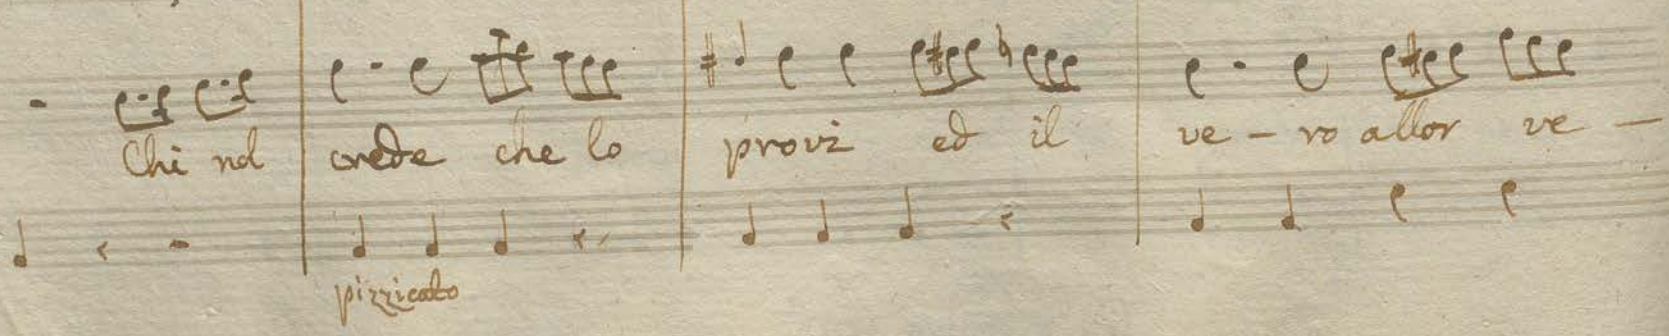 Chi nol crede che lo provi ed il ve - ro allor ve -
pizzicato